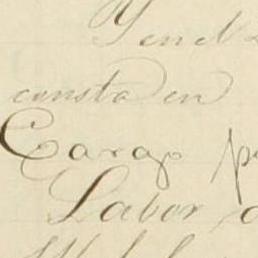 Y en el
consta en
Carap p
Labor d